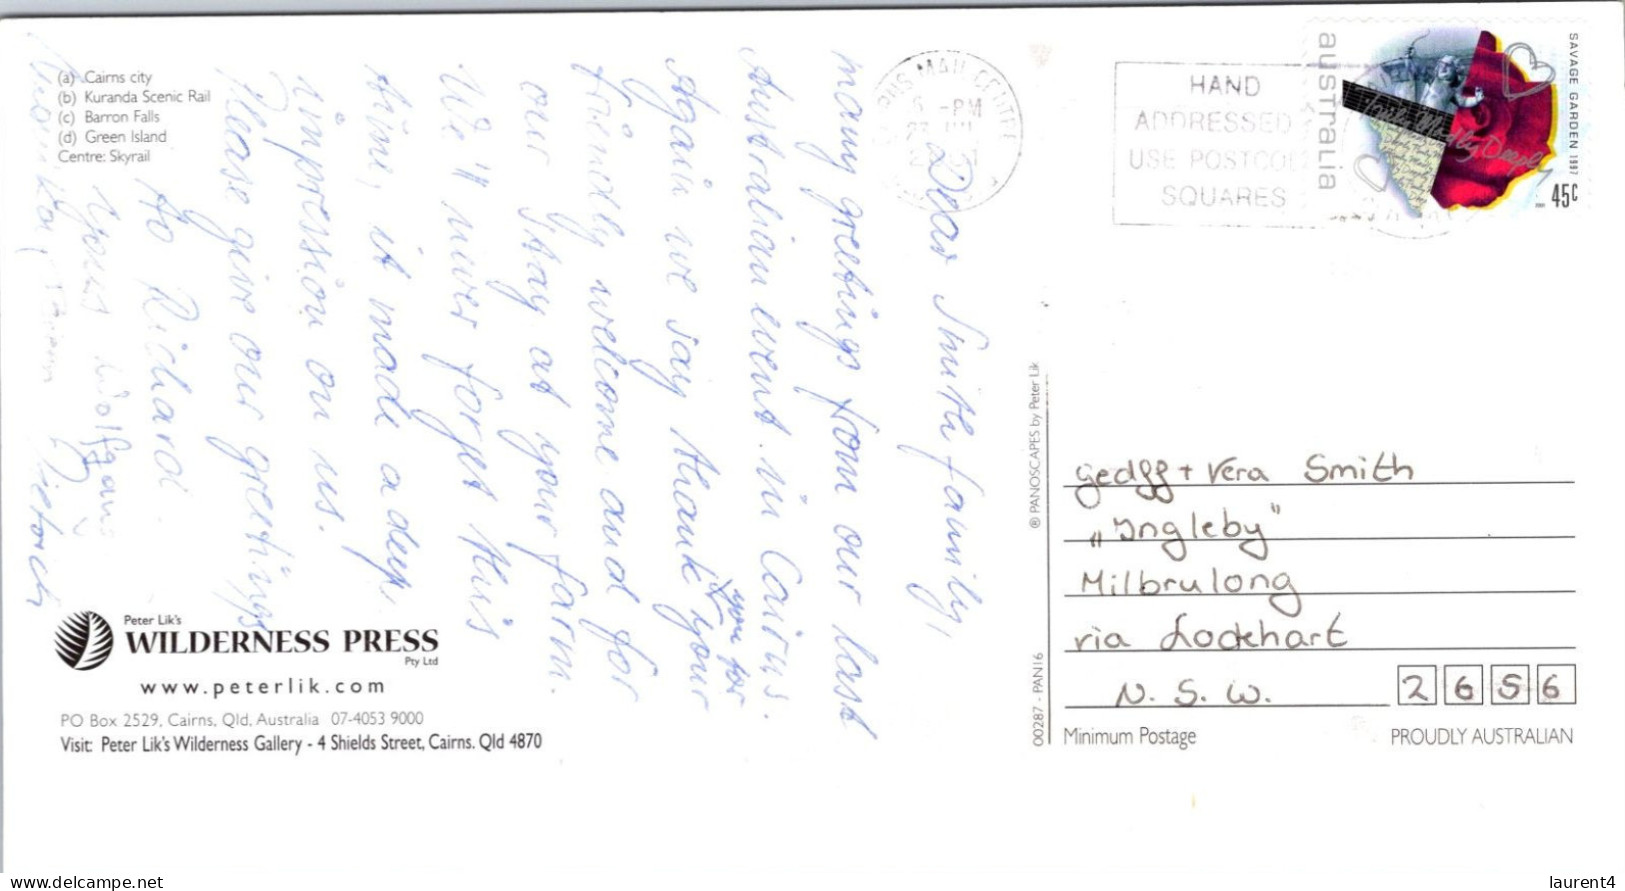 (a) Cairns city
(b) Kuranda Scenic Rail
(c) Barron Falls
(d) Green Island
Centre: Skyrail
Dear Smith family,
many greetings from our last
Australian event in Cairns.
Again we say thank you for your
friendly welcome and for
our stay at your farm.
We'll never forget this
time, it made a deep
impression on us.
Please give our greetings
to Richard.
Yours Wolfgang
Peter Lik's
WILDERNESS PRESS
Pty Ltd
www.peterlik.com
PO Box 2529, Cairns, Qld, Australia 07-4053 9000
Visit: Peter Lik's Wilderness Gallery - 4 Shields Street, Cairns. Qld 4870
® PANOSCAPES by Peter Lik
00287 - PAN16
MAIL CENTRE
6 -PM
HAND
ADDRESSED
USE POSTCODE
SQUARES
australia
SAVAGE GARDEN 1997
Truly Madly Deeply
45c
Geoff + Vera Smith
"Ingleby"
Milbrulong
via Lockhart
N. S. W. 2656
Minimum Postage
PROUDLY AUSTRALIAN
laurent4